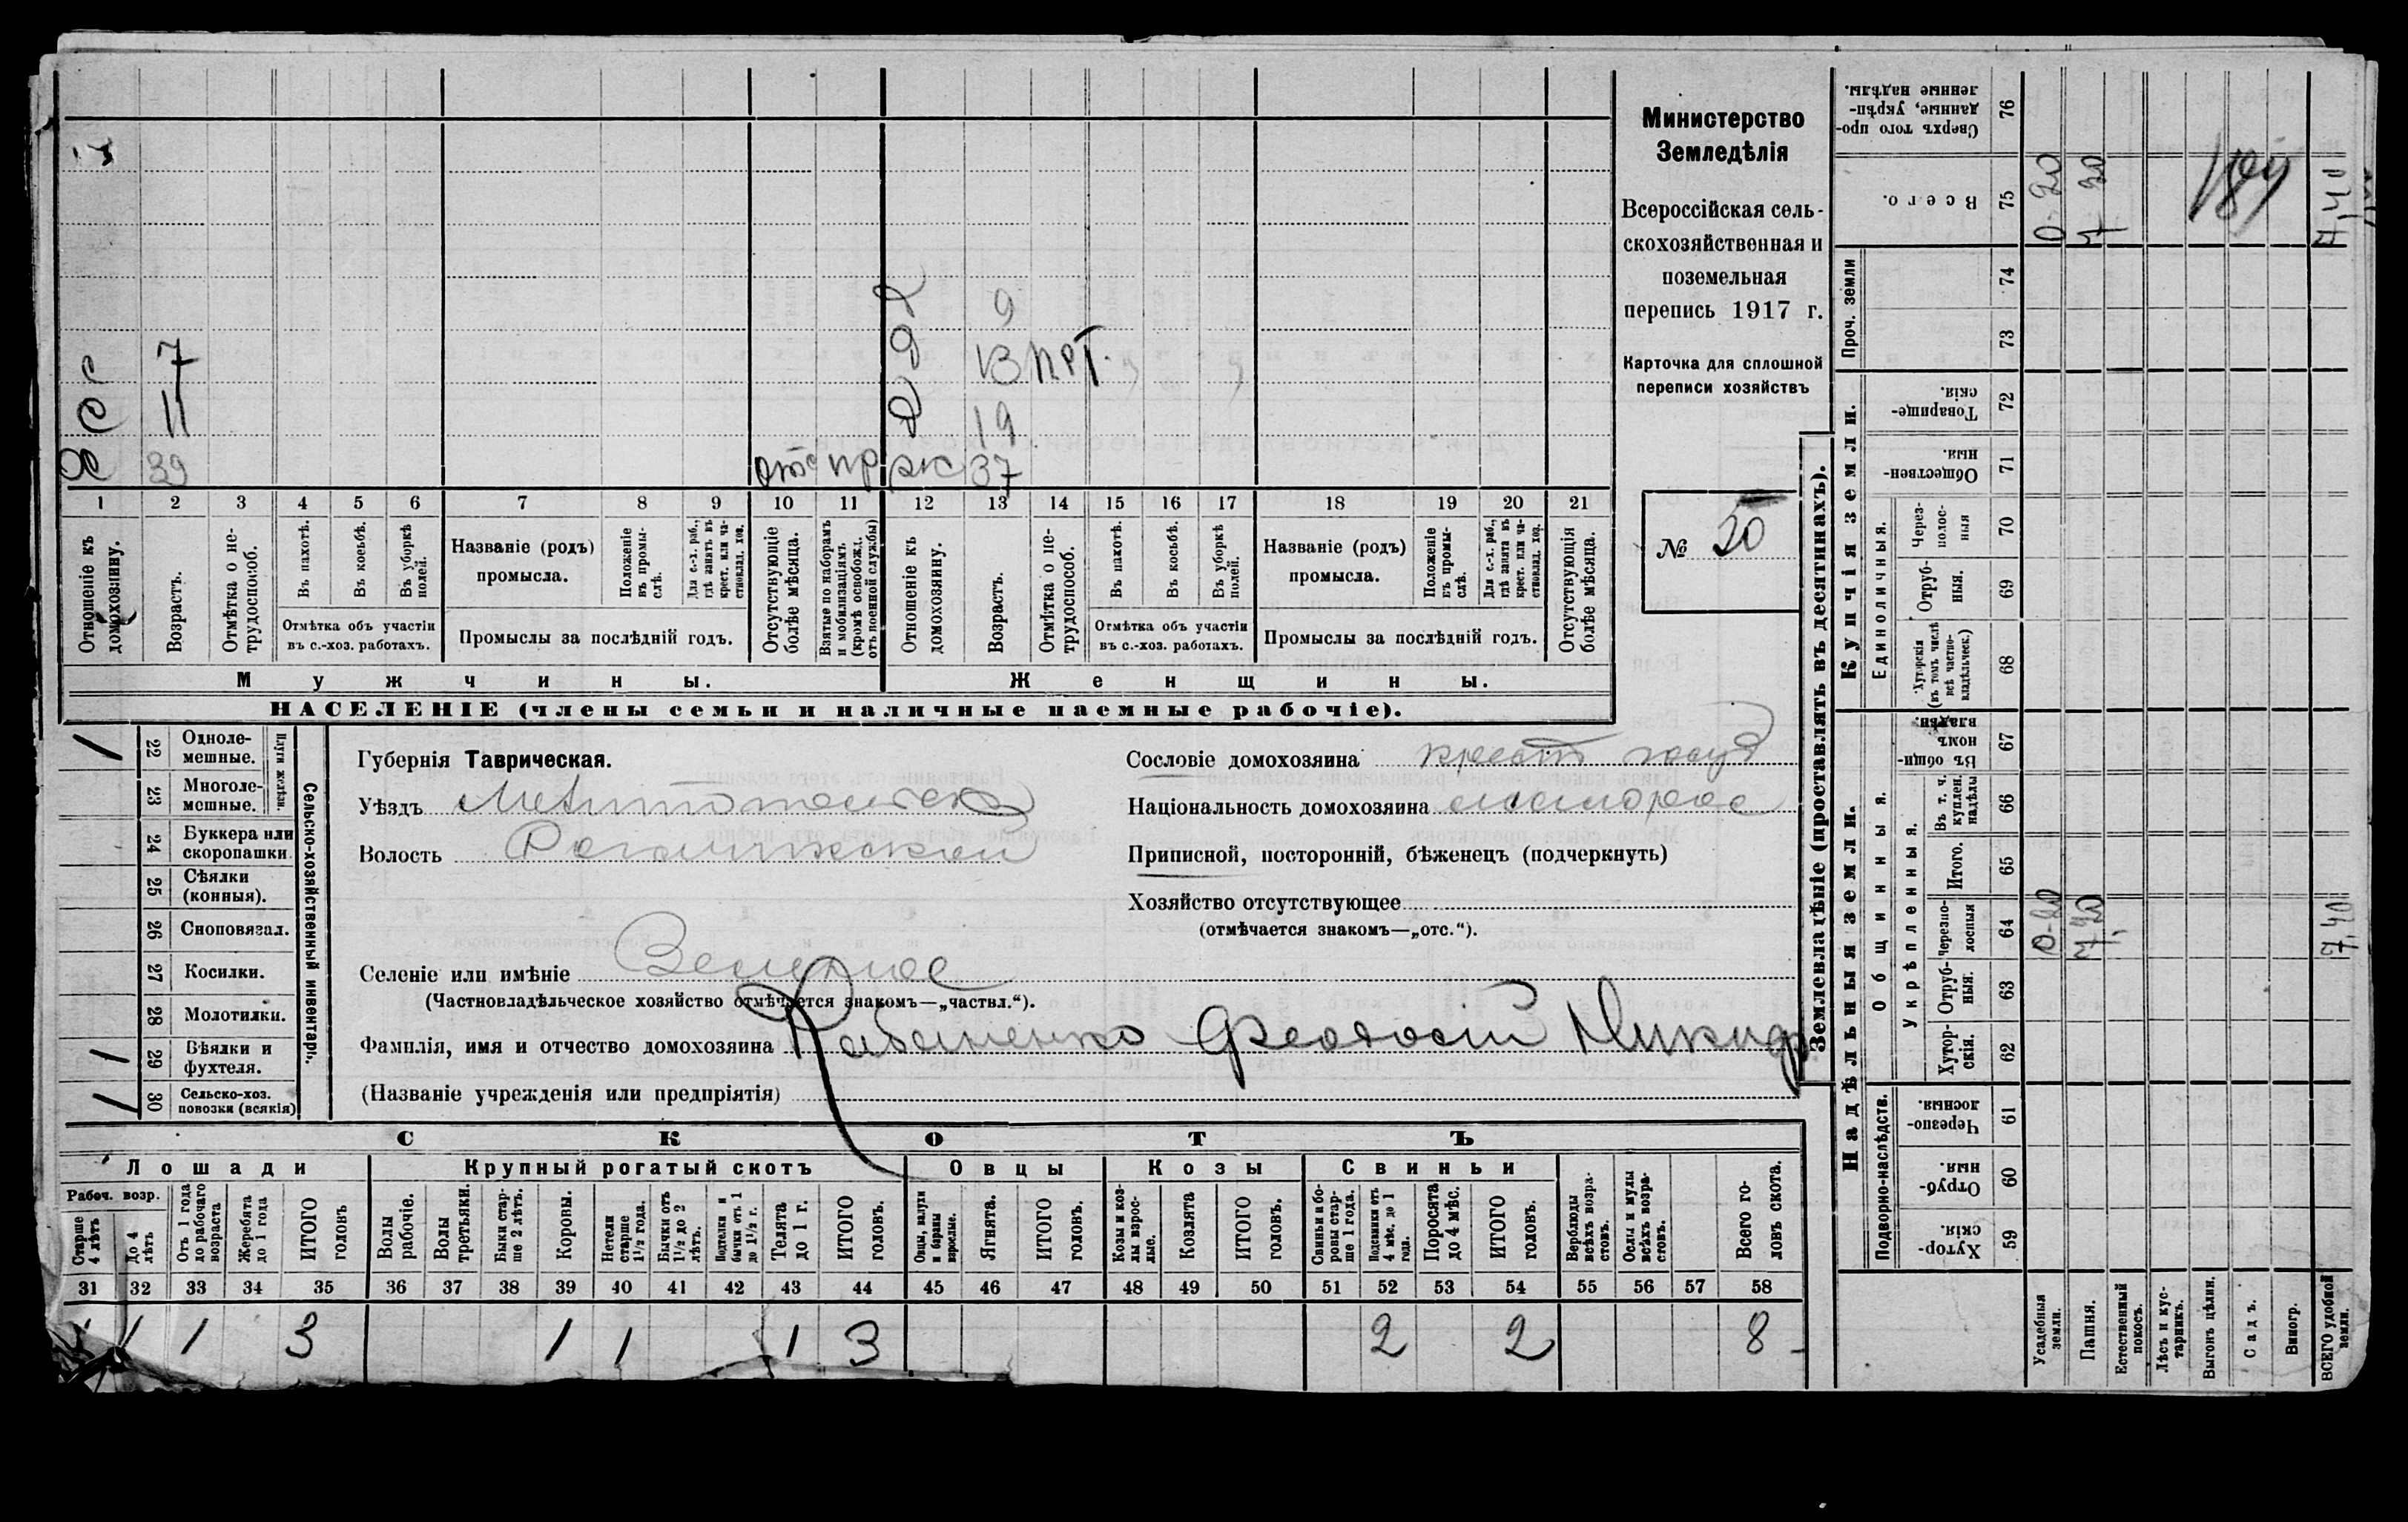 Министерство
Земледѣлія
Всероссійская сель-
скохозяйственная и
поземельная
перепись 1917 г.
Карточка для сплошной
переписи хозяйствъ
№ 50
9
с 7
13 прт.
с 11
Д 19
Х 39 отс пр
ж 37
1 2 3 4 5 6 7 8 9 10 11 12 13 14 15 16 17 18 19 20 21
Отношеніе къ домохозяину.
Возрастъ.
Отмѣтка о не-трудоспособ.
Въ пахотѣ.
Въ косьбѣ.
Въ уборкѣ полей.
Отмѣтка объ участіи
въ с.-хоз. работахъ.
Названіе (родъ)
промысла.
Положеніе въ промы-слѣ.
Для с.-х. раб., гдѣ занятъ въ крест. или ча-стновлад. хоз.
Промыслы за послѣдній годъ.
Отсутствующіе болѣе мѣсяца.
Взятые по наборамъ и мобилизаціямъ (кромѣ освобожд. отъ военной службы)
Отношеніе къ домохозяину.
Возрастъ.
Отмѣтка о не-трудоспособ.
Въ пахотѣ.
Въ косьбѣ.
Въ уборкѣ полей.
Отмѣтка объ участіи
въ с.-хоз. работахъ.
Названіе (родъ)
промысла.
Положеніе въ промы-слѣ.
Для с.-х. раб., гдѣ занята въ крест. или ча-стновлад. хоз.
Промыслы за послѣдній годъ.
Отсутствующія болѣе мѣсяца.
Мужчины.
Женщины.
НАСЕЛЕНІЕ (члены семьи и наличные наемные рабочіе).
Сельско-хозяйственный инвентарь.
Плуги желѣзн.
1 22 Одноле-мешные.
23 Многоле-мешные.
24 Буккера или скоропашки.
25 Сѣялки (конныя).
26 Сноповязал.
27 Косилки.
28 Молотилки.
1 29 Вѣялки и фухтеля.
1 30 Сельско-хоз. повозки (всякія)
Губернія Таврическая.
Уѣздъ Мелитопольскій
Волость Рогачикская
Селеніе или имѣніе
(Частновладѣльческое хозяйство отмѣчается знакомъ—„частвл.“).
Фамилія, имя и отчество домохозяина Рабаненко Феодосій Никиф
(Названіе учрежденія или предпріятія)
Сословіе домохозяина крест
Національность домохозяина малорос
Приписной, посторонній, бѣженецъ (подчеркнуть)
Хозяйство отсутствующее
(отмѣчается знакомъ—„отс.“).
СКОТЪ
Лошади
Крупный рогатый скотъ
Овцы
Козы
Свиньи
Рабоч. возр.
Старше 4 лѣтъ
До 4 лѣтъ
Отъ 1 года до рабочаго возраста
Жеребята до 1 года
ИТОГО головъ
Волы рабочіе.
Волы третьяки.
Быки стар-ше 2 лѣтъ.
Коровы.
Нетели старше 1½ года.
Бычки отъ 1½ до 2 лѣтъ.
Подтелки и бычки отъ 1 до 1½ г.
Телята до 1 г.
ИТОГО головъ.
Овцы, валухи и бараны взрослые.
Ягнята.
ИТОГО головъ.
Козы и коз-лы взрос-лые.
Козлята
ИТОГО головъ.
Свиньи и бо-ровы стар-ше 1 года.
Подсвинки отъ 4 мѣс. до 1 года.
Поросята до 4 мѣс.
ИТОГО головъ.
Верблюды всѣхъ возра-стовъ.
Ослы и мулы всѣхъ возра-стовъ.
Всего го-ловъ скота.
31 32 33 34 35 36 37 38 39 40 41 42 43 44 45 46 47 48 49 50 51 52 53 54 55 56 57 58
1 1 1 3 1 1 1 3 2 2 8
Землевладѣніе (проставлять въ десятинахъ).
Надѣльныя земли.
Купчія земли.
Проч. земли
Подворно-наслѣдств.
Общинныя.
Укрѣпленныя.
Единоличныя.
Хутор-скія. 59
Отруб-ныя. 60
Черезпо-лосныя. 61
Хутор-скія. 62
Отруб-ныя. 63
Черезпо-лосныя 64
Итого. 65
Въ т. ч. куплен. надѣлы 66
Въ общи-номъ владѣн. 67
Хуторскія (въ томъ числѣ всѣ частно-владѣльческ.) 68
Отруб-ныя. 69
Через-полос-ныя 70
Обществен-ныя. 71
Товарище-скія. 72
73
74
Всего. 75
Сверхъ того про-данные, укрѣп-ленные надѣлы. 76
Усадебныя земли.
0-20 0-20
Пашня.
7.20 7.20
Естественный покосъ.
Лѣсъ и кус-тарникъ.
Выгонъ цѣлин.
Садъ.
Виногр.
ВСЕГО удобной земли.
7,40 7,40